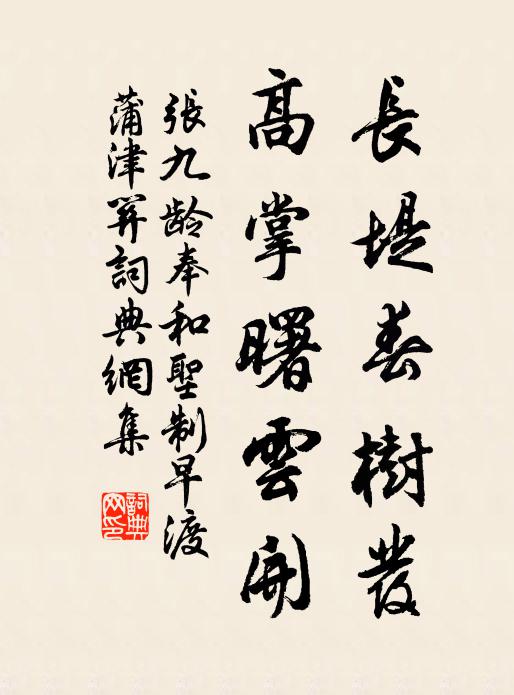 長堤春樹發
高掌曙雲開
張九龄奉和聖制早渡
蒲津關詞典網集
詞典
网印